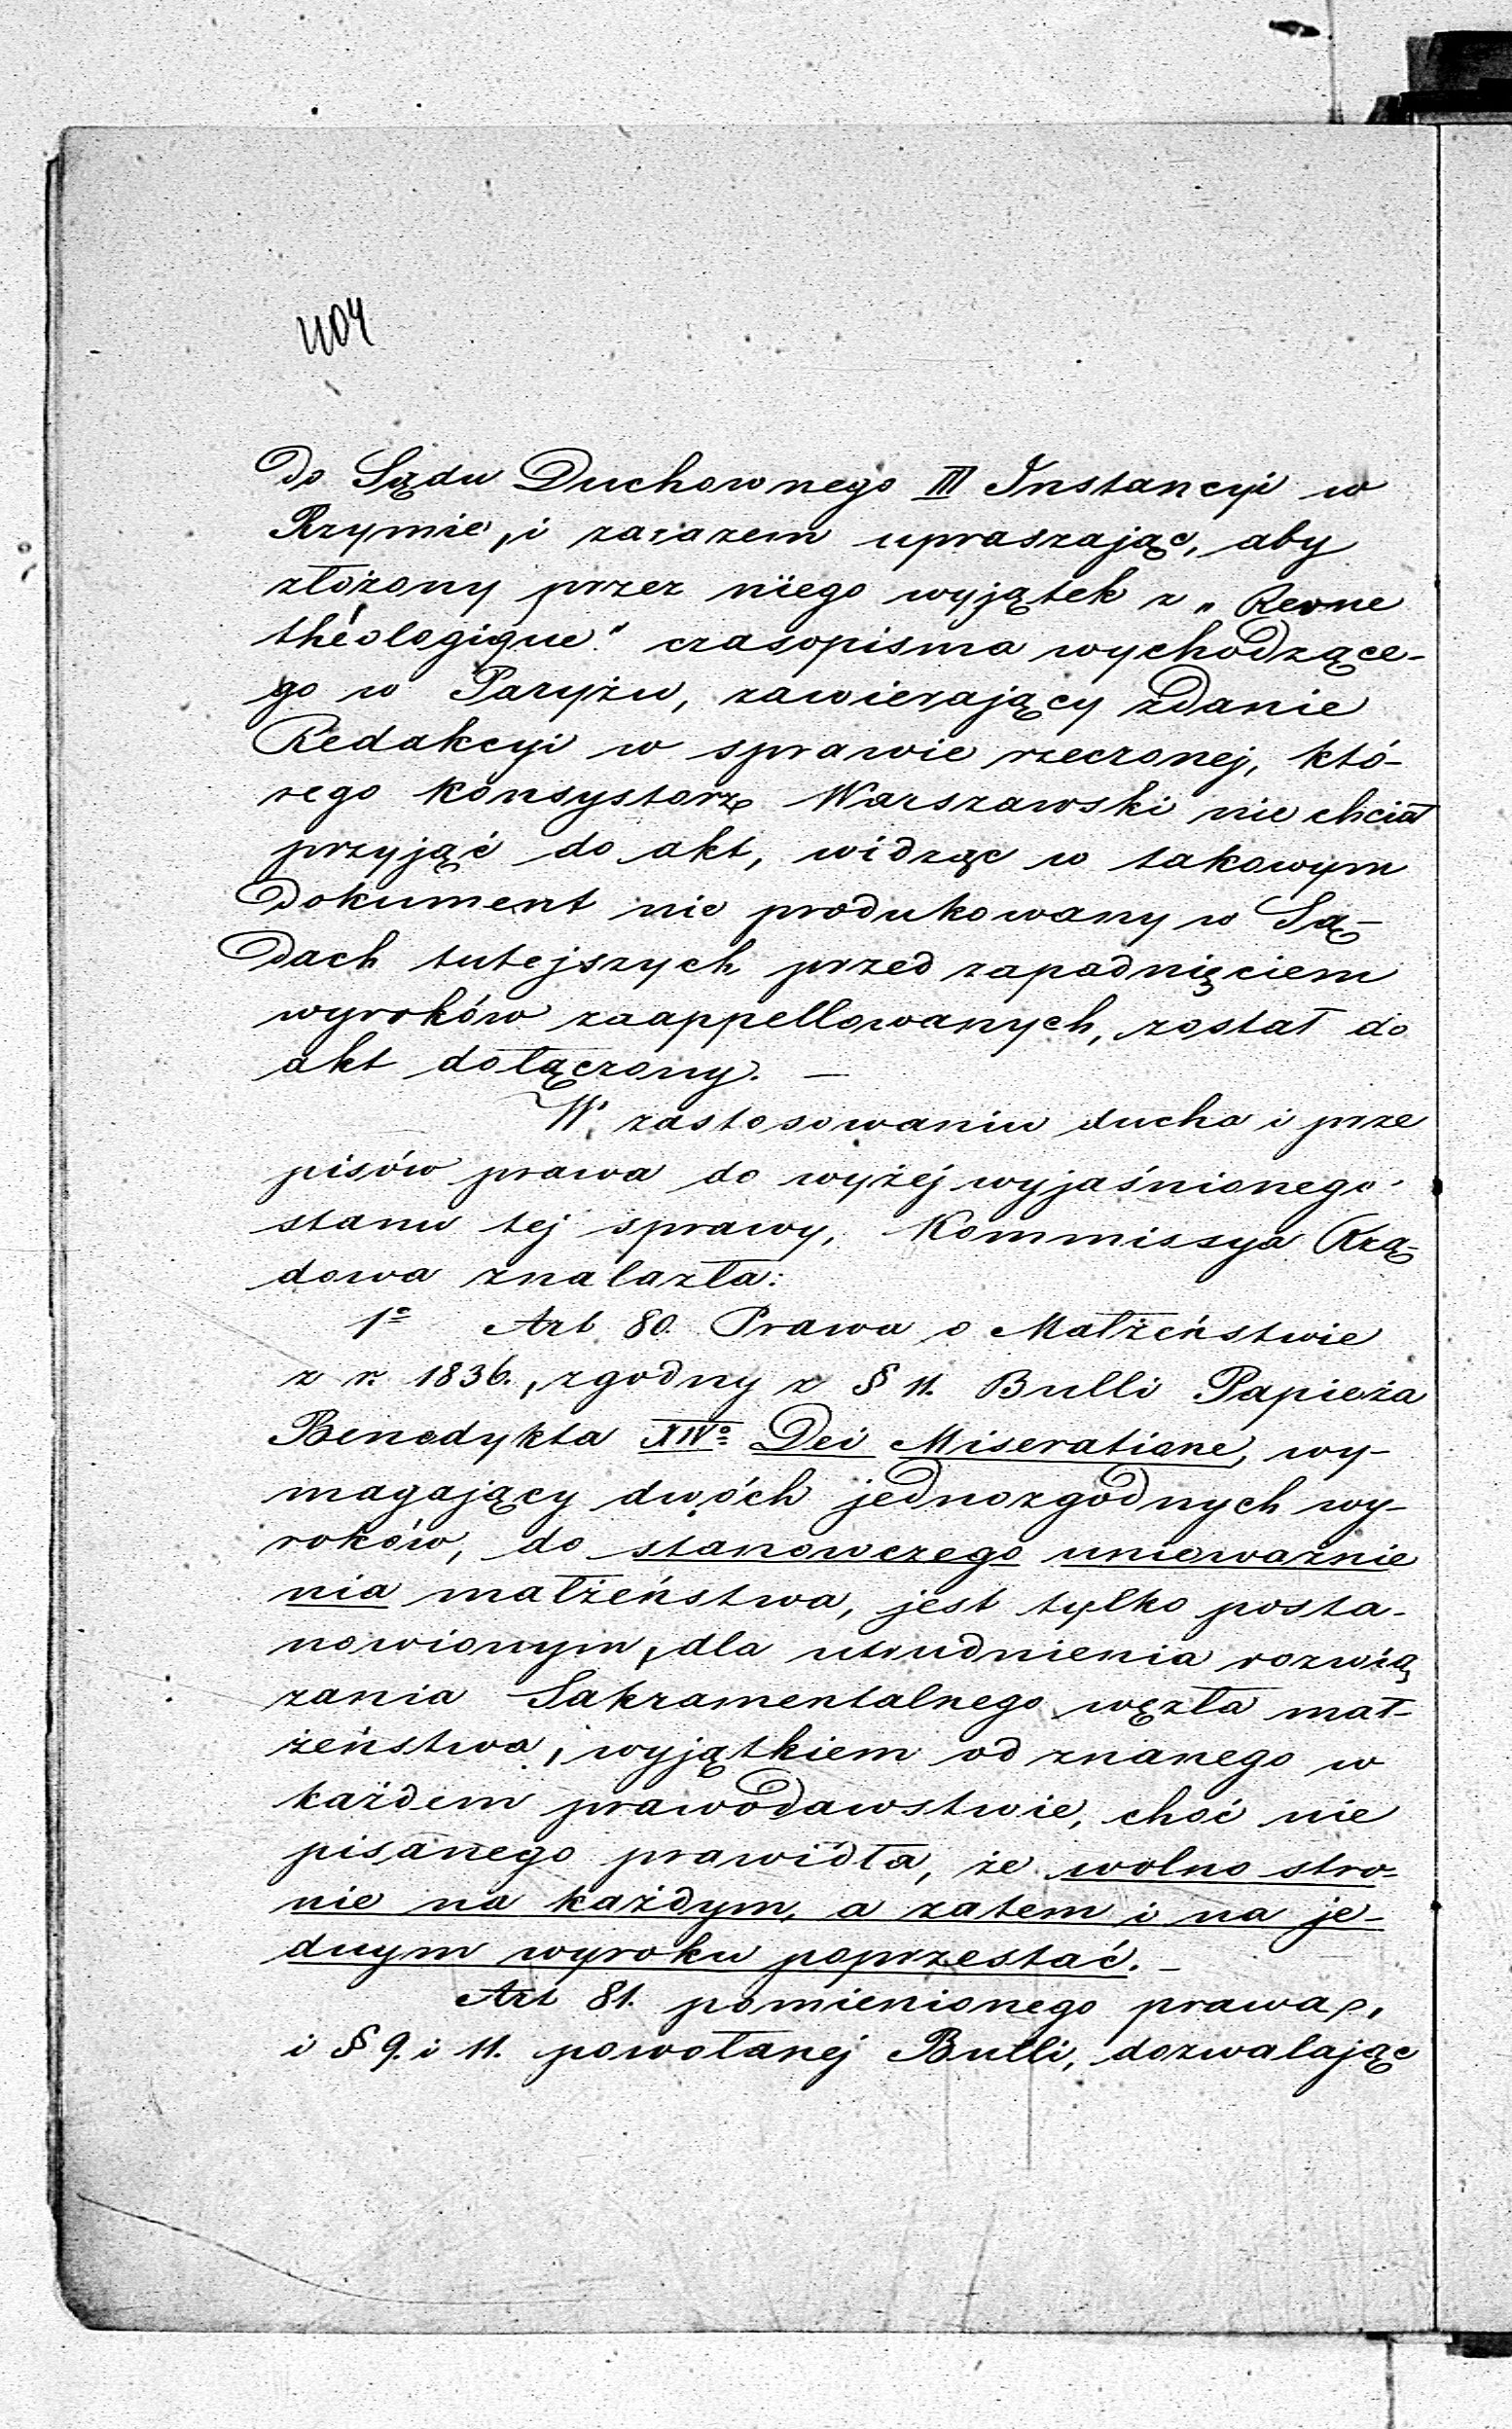 404
do Sądu Duchownego III Instancyi w
Rzymie, i zarazem upraszając, aby
złożony przez niego wyjątek z „Revue
théologique" czasopisma wychodzące-
go w Paryżu, zawierający zdanie
Redakcyi w sprawie rzeczonej, któ-
rego Konsystorz Warszawski nie chciał
przyjąć do akt, widząc w takowym
dokument nie produkowany w Są-
dach tutejszych przed zapadnięciem
wyroków zaappellowanych, został do
akt dołączony. —
W zastosowaniu ducha i prze
pisów prawa do wyżej wyjaśnionego
stanu tej sprawy, Kommissya Rzą-
dowa znalazła:
1º Art 80. Prawa o Małżeństwie
z r. 1836., zgodny z § 11. Bulli Papieża
Benedykta XIVº Dei Miseratione, wy-
magający dwóch jednozgodnych wy-
roków, do stanowczego unieważnie
nia małżeństwa, jest tylko posta-
nowionym, dla utrudnienia rozwią
zania Sakramentalnego węzła mał-
żeństwa, wyjątkiem od znanego w
każdem prawodawstwie, choć nie
pisanego prawidła, że wolno stro-
nie na każdym, a zatem i na je-
dnym wyroku poprzestać. —
Art 81. pomienionego prawa,
i § 9. i 11. powołanej Bulli, dozwalając